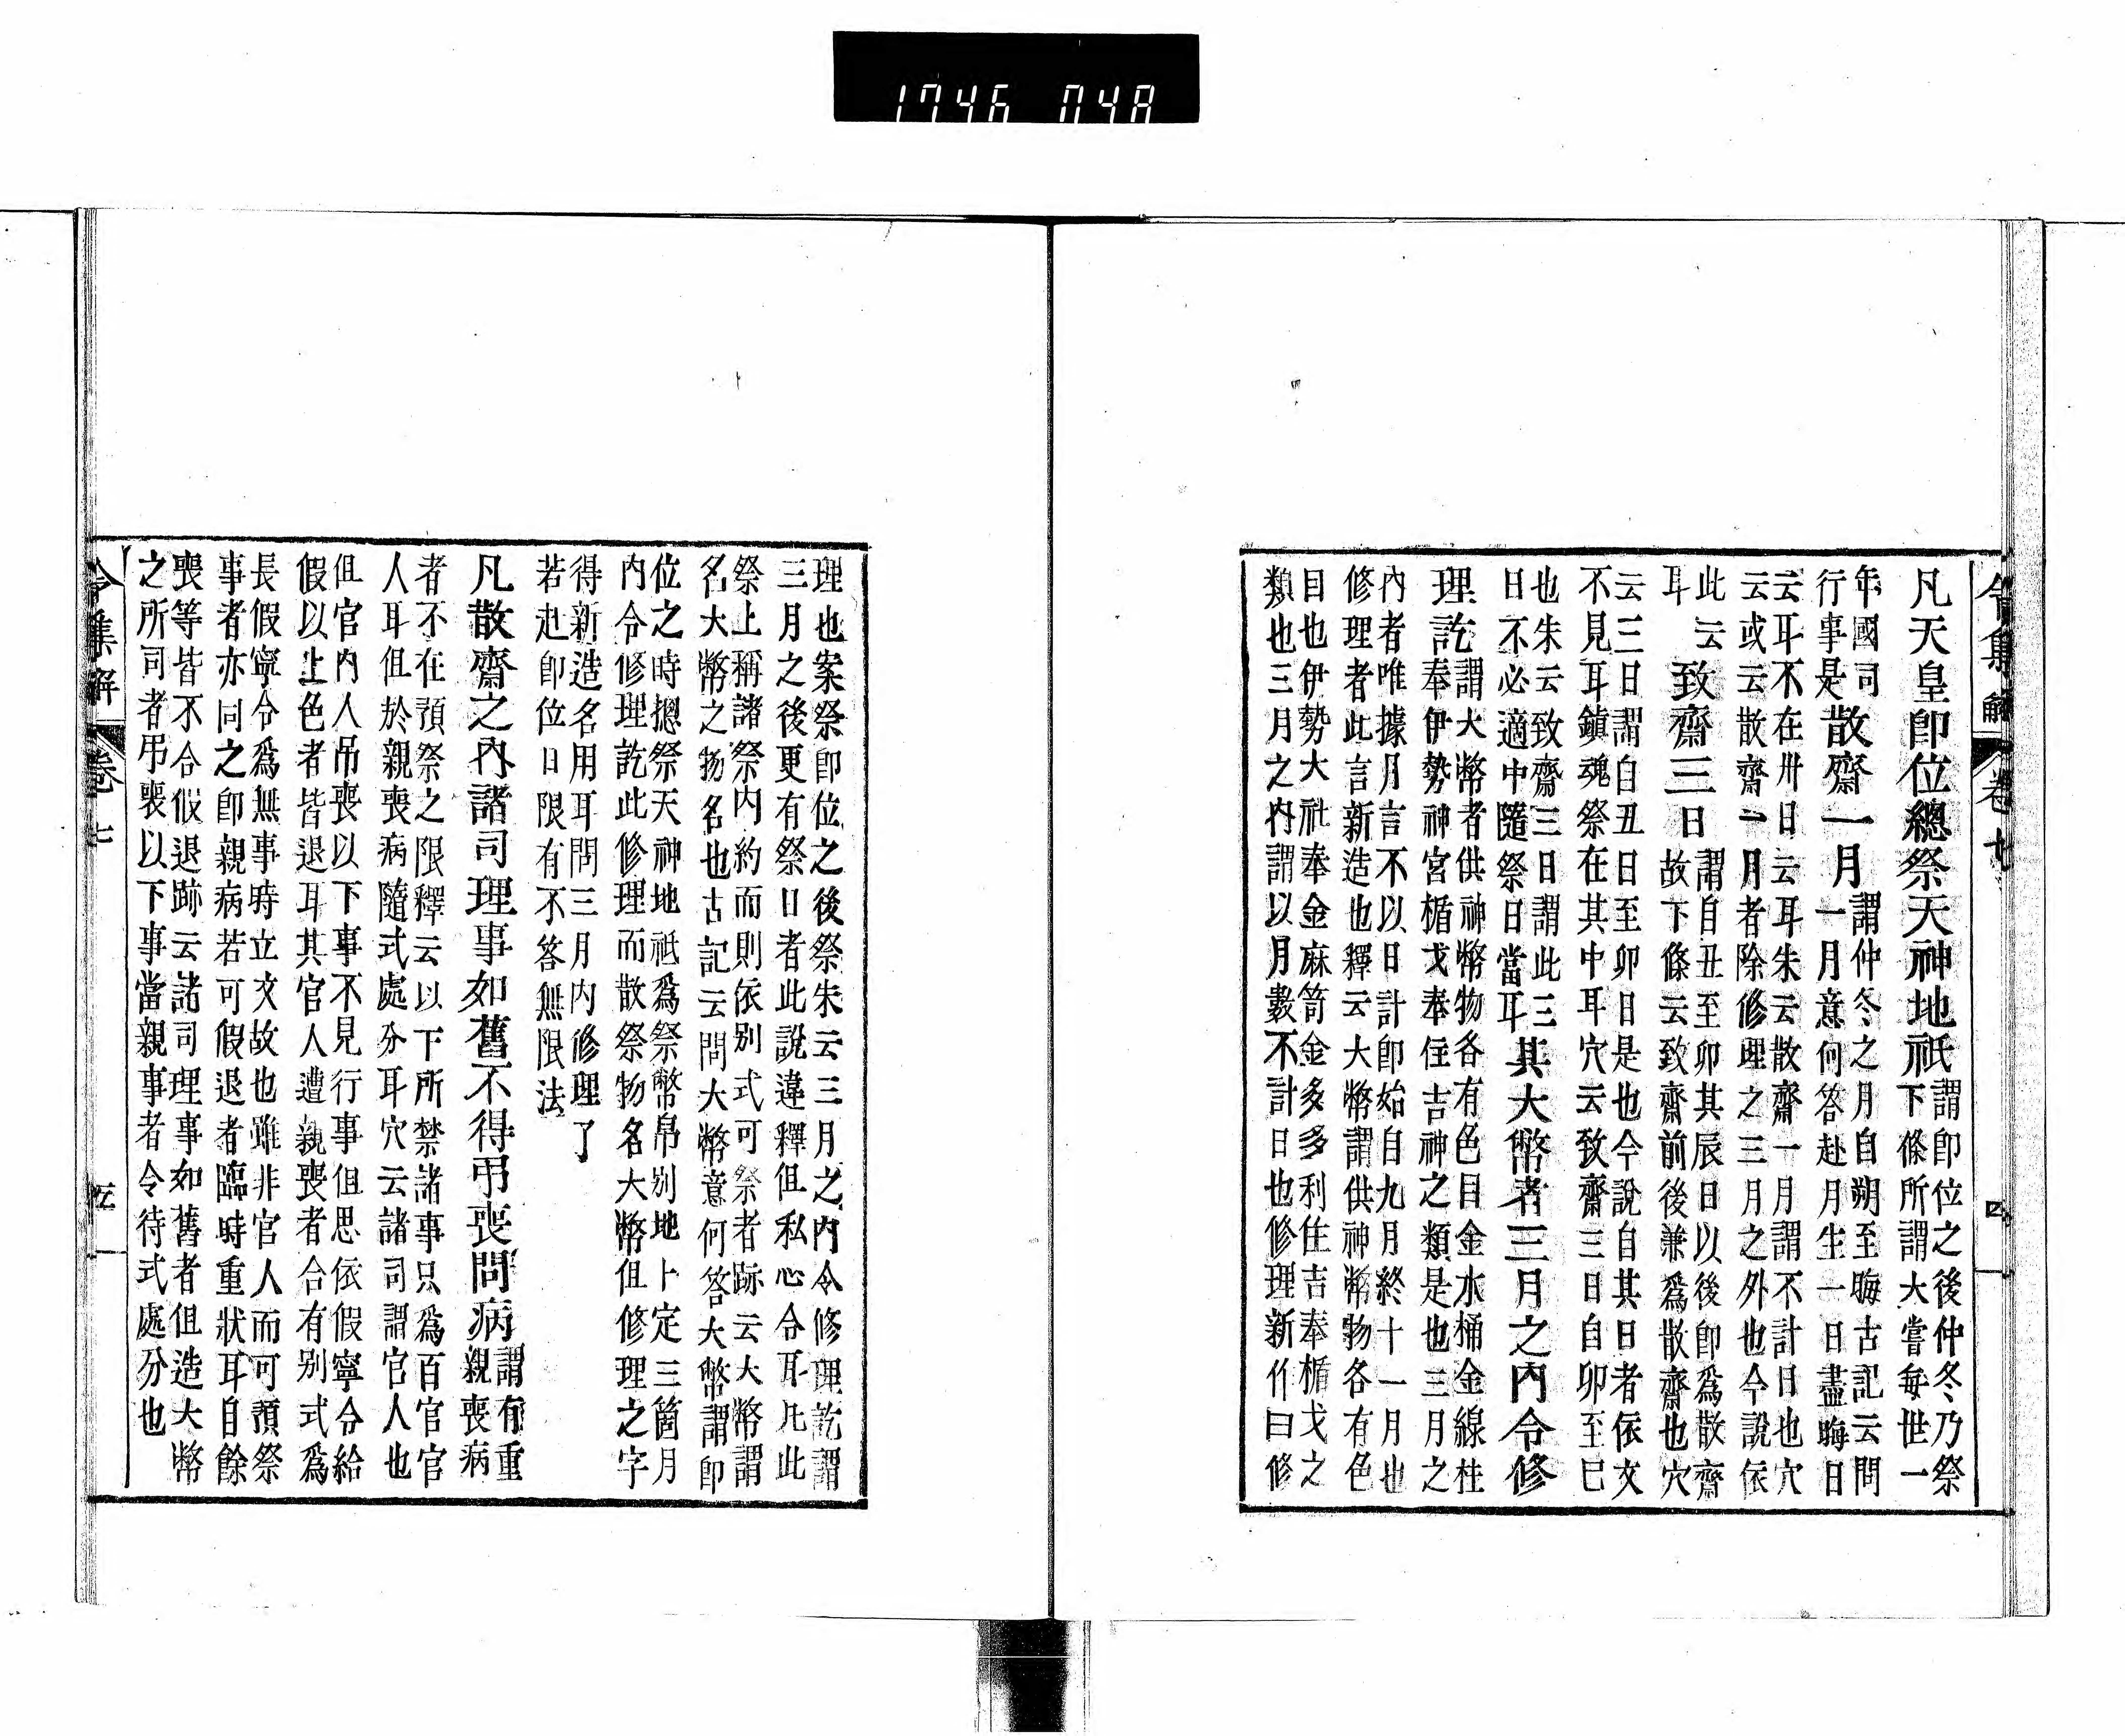 1746 048
令集解 卷七 四
凡天皇卽位總祭天神地祇謂卽位之後仲冬乃祭
下條所謂大嘗每世一
年國司
行事是散齋一月謂仲冬之月自朔至晦古記云問
一月意何答赴月生一日盡晦日
云耳不在卅日云耳朱云散齋一月謂不計日也穴
云或云散齋一月者除修理之三月之外也今說依
此云
耳致齋三日謂自丑至卯其辰日以後卽爲散齋
故下條云致齋前後兼爲散齋也穴
云三日謂自丑日至卯日是也今說自其日者依文
不見耳鎮魂祭在其中耳穴云致齋三日自卯至巳
也朱云致齋三日謂此三
日不必適中隨祭日當耳其大幣者三月之內令修
理訖謂大幣者供神幣物各有色目金水桶金線柱
奉伊勢神宮楯戈奉住吉神之類是也三月之
內者唯據月言不以日計卽始自九月終十一月也
修理者此言新造也釋云大幣謂供神幣物各有色
目也伊勢大社奉金麻笥金多多利住吉奉楯戈之
類也三月之內謂以月數不計日也修理新作曰修
理也案祭卽位之後祭朱云三月之內令修理訖謂
三月之後更有祭日者此說違釋但私心令耳凡此
祭上稱諸祭內約而則依別式可祭者跡云大幣謂
名大幣之物名也古記云問大幣意何答大幣謂卽
位之時摠祭天神地祇爲祭幣帛別地卜定三箇月
內令修理訖此修理而散祭物名大幣但修理之字
得新造名用耳問三月內修理了
若赴卽位日限有不答無限法
凡散齋之內諸司理事如舊不得弔喪問病謂有重
親喪病
者不在預祭之限釋云以下所禁諸事只爲百官官
人耳但於親喪病隨式處分耳穴云諸司謂官人也
但官內人吊喪以下事不見行事但思依假寧令給
假以上色者皆退耳其官人遭親喪者合有別式爲
長假寧令爲無事時立文故也雖非官人而可預祭
事者亦同之卽親病若可假退者臨時重狀耳自餘
喪等皆不合假退跡云諸司理事如舊者但造大幣
之所司者弔喪以下事當親事者令待式處分也
令集解 卷七 五